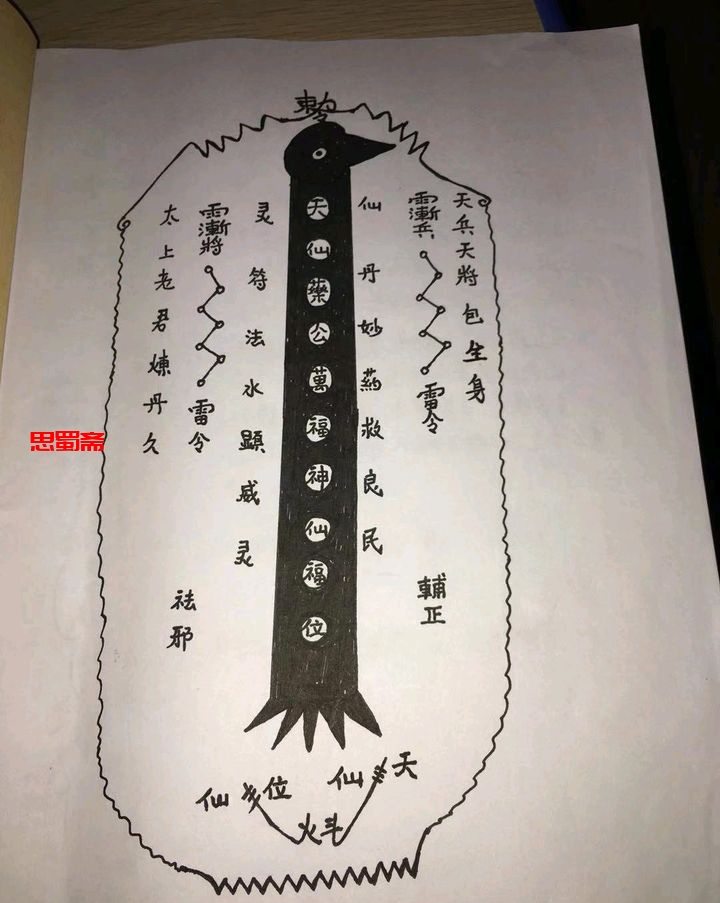 敕令
天兵天將包生身
雷令
仙丹妙葯救良民
天仙藥公萬福神仙福位
灵符法水顕威灵
雷令
太上老君煉丹久
輔正
祛邪
仙位
仙天
思蜀斋